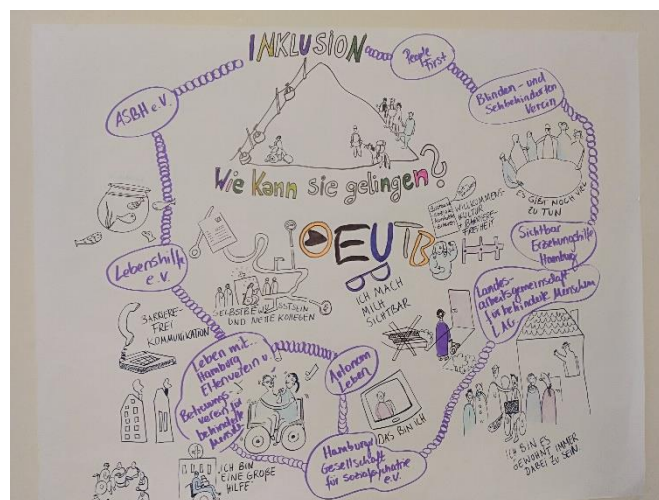 INKLUSION
People
First
ASBH e.V.
Blinden- und
Sehbehinderten
Verein
Wie kann sie gelingen?
ES GIBT NOCH VIEL
ZU TUN
WILLKOMMENS-
KULTUR
+ BARRIERE-
FREIHEIT
EUTB
Sichtbar
Erziehungshilfe
Hamburg
Lebenshilfe
e.V.
SELBSTBEWUSSTSEIN
UND NETTE KOLLEGEN
ICH MACH
MICH
SICHTBAR
Landes-
arbeitsgemeinschaft
für behinderte Menschen
LAG
BARRIERE-
FREI
KOMMUNIKATION
Leben mit..
Hamburg
Elternverein u.
Betreuungs-
verein für
behinderte
Menschen
Autonom
Leben
DAS BIN ICH
Hamburger
Gesellschaft
für soziale
e.V.
ICH BIN ES
GEWOHNT IMMER
DABEI ZU SEIN
ICH BIN
EINE GROßE
HILFE